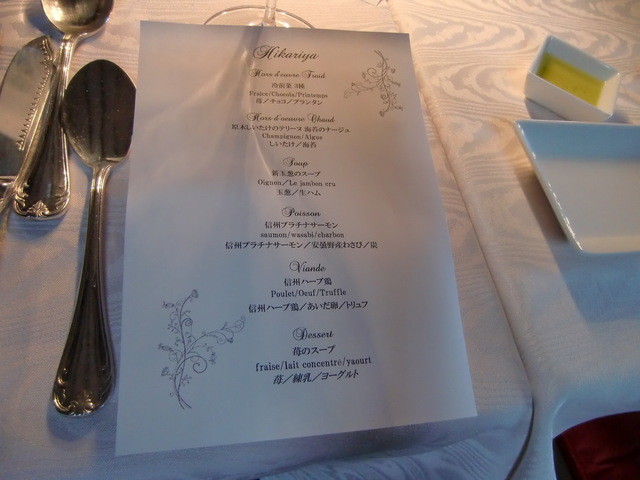 Hikariya
Hors d'oeuvre Froid
冷前菜 3種
Fraise/Chocola/Printemps
苺／チョコ／プランタン
Hors d'oeuvre Chaud
原木しいたけのテリーヌ 海苔のナージュ
Champignon/Algue
しいたけ／海苔
Soup
新玉葱のスープ
Oignon/Le jambon cru
玉葱／生ハム
Poisson
信州プラチナサーモン
saumon/wasabi/charbon
信州プラチナサーモン／安曇野産わさび／炭
Viande
信州ハーブ鶏
Poulet/Oeuf/Truffle
信州ハーブ鶏／あいだ卵／トリュフ
Dessert
苺のスープ
fraise/lait concentré/yaourt
苺／練乳／ヨーグルト